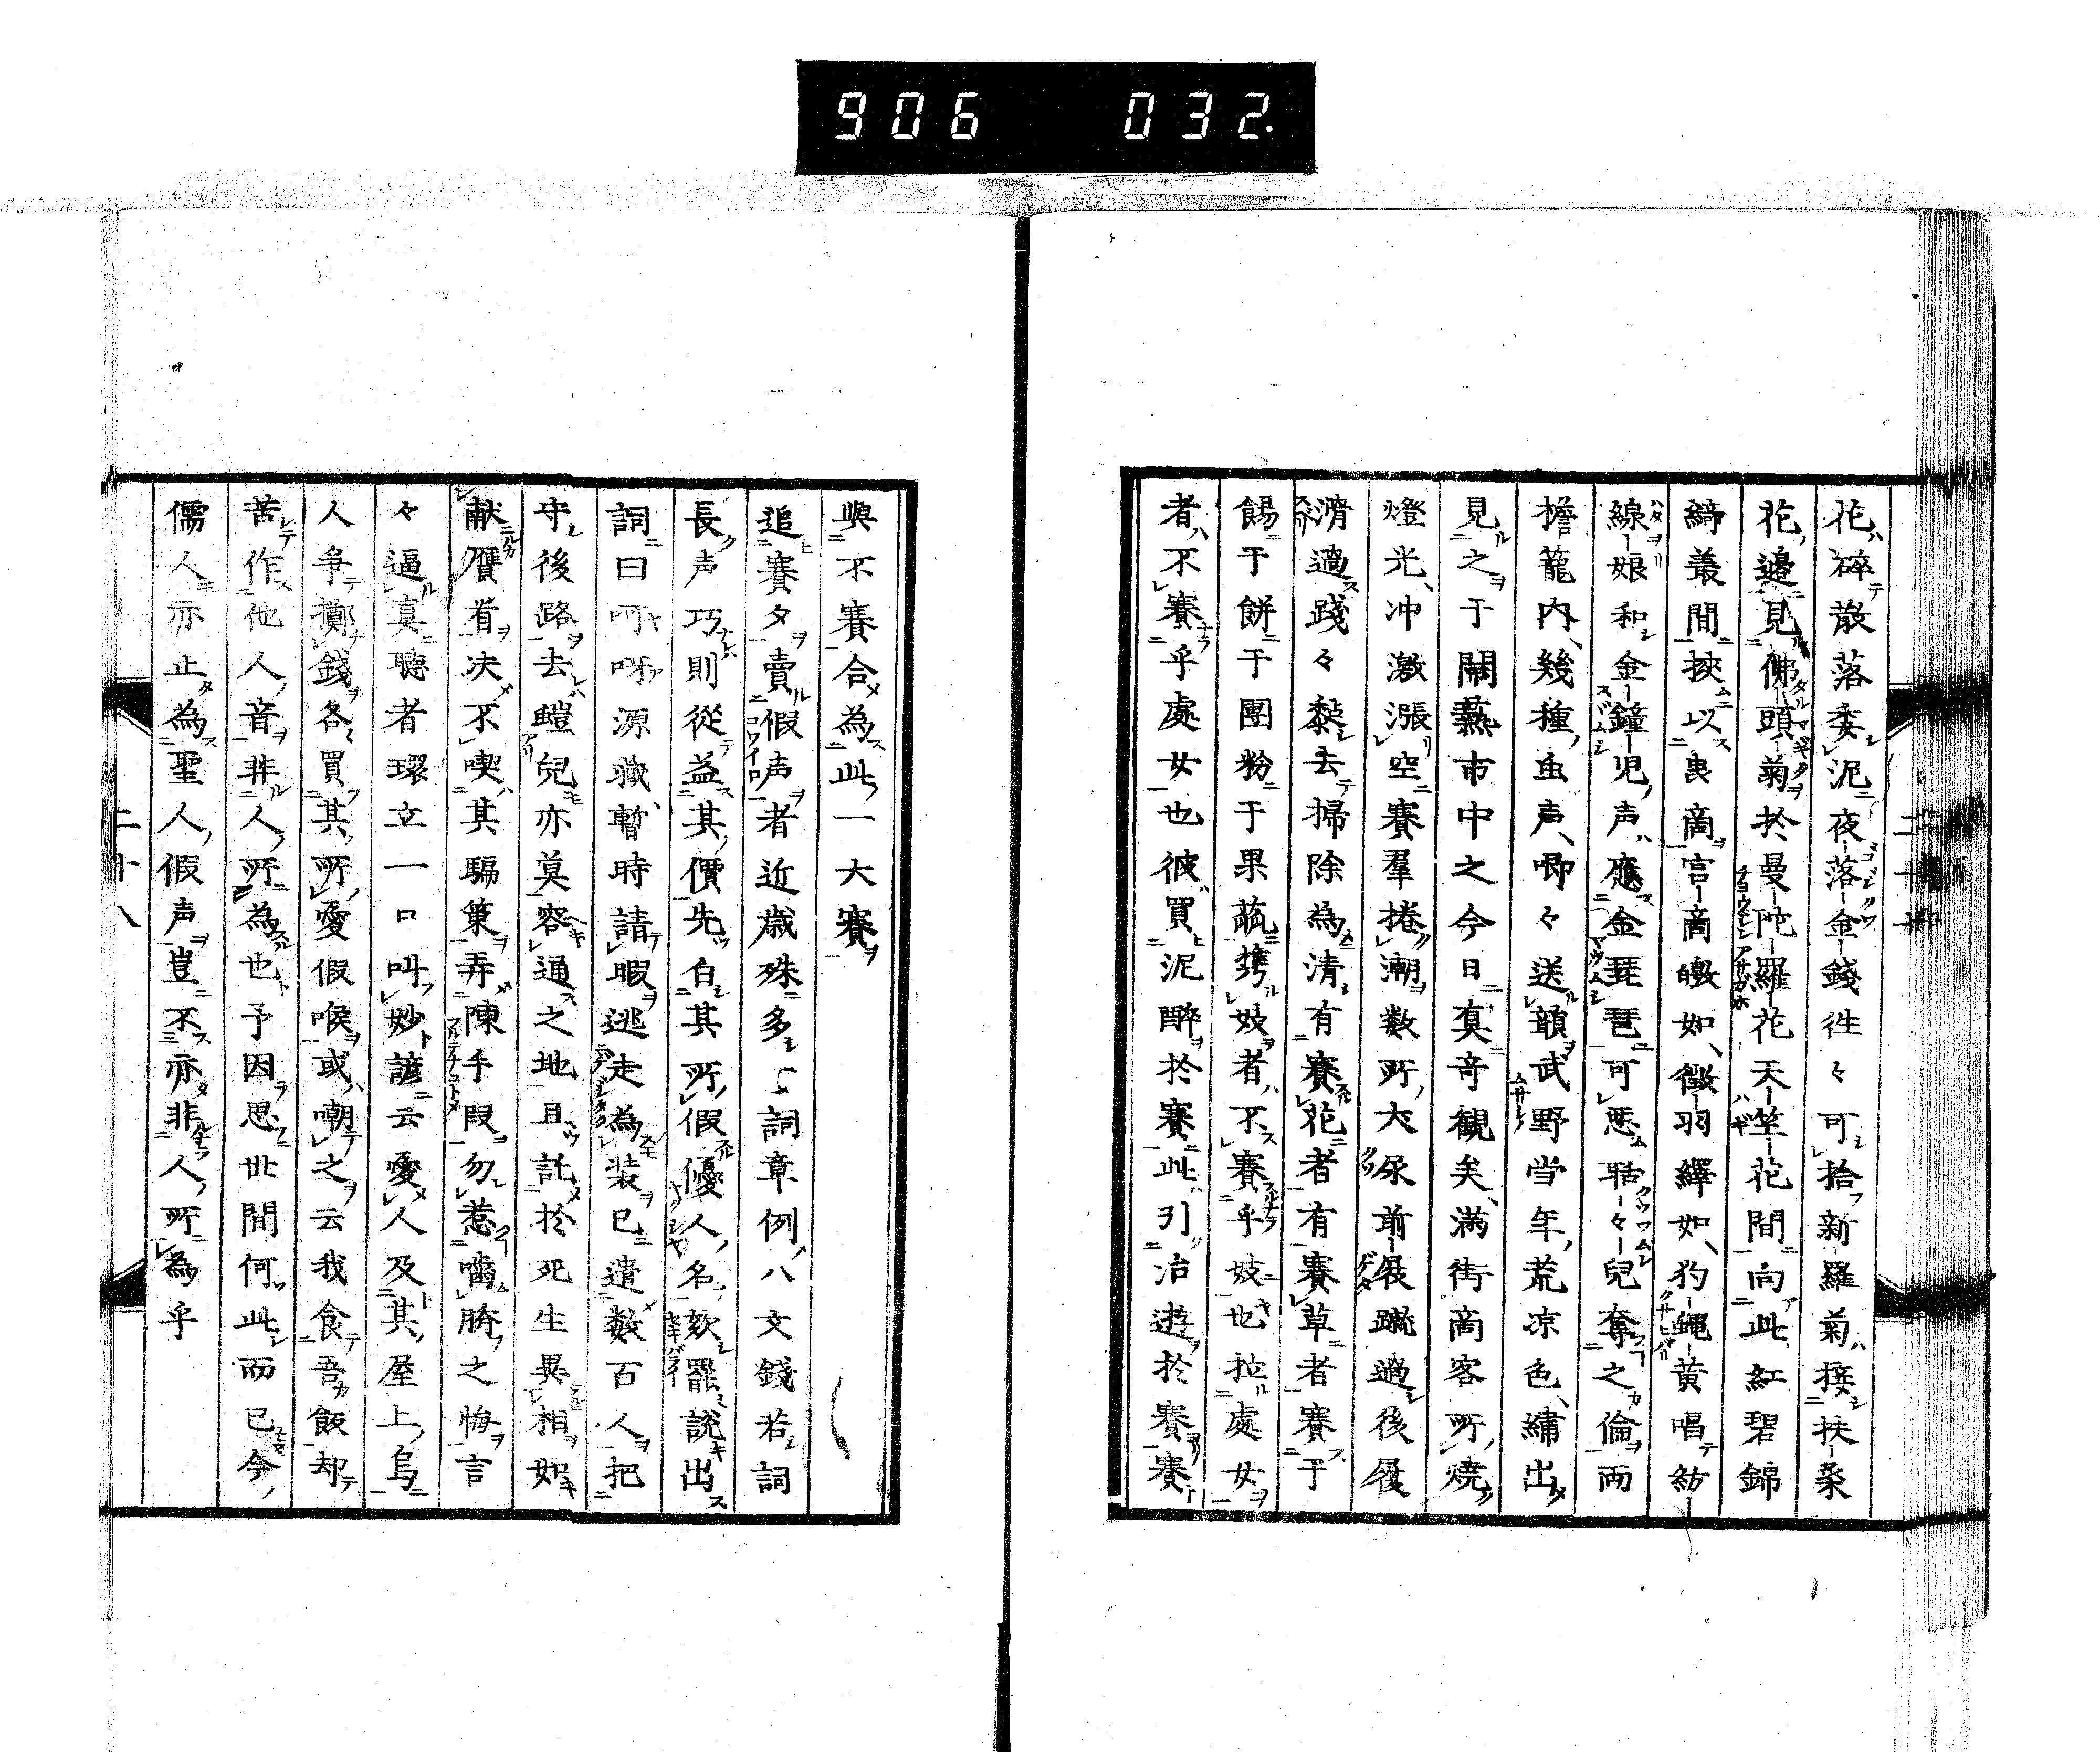 906 032.
花碎散落委泥夜落金錢徃々可拾新羅菊接扶桒
花邉見佛頭菊於曼陀羅花天竺花間向此紅碧錦
綺叢間挾以臭啇宫啇皦如徵羽繹如豹蠅黄唱紡
線娘和金鐘児声應金琵琶可悪聒々兒奪之倫両
擔籠内幾種虫声喞々送韻武野当年荒凉色繍出
見之于閙熱市中之今日真奇観矣満街啇客所燒
燈光冲激漲空賽羣捲潮数所犬尿前展蹴過後履
滑過踐々黏去掃除為清有賽花者有賽草者賽于
餳于餅于團粉于果蓏携妓者不賽乎妓也拉處女
者不賽乎處女也彼買泥醉於賽此引冶遊於賽賽
與不賽合為此一大賽
追賽夕賣假声者近歳殊多々詞章例八文錢若詞
長声巧則從益其價先白其所假優人名欬罷説出
詞曰呵呀源職暫時請暇逃走為装已遣數百人把
守後路去螘兒亦莫容通之地且託於死生異相如
献贋首决不喫其騙策弄陳手段勿惹噛臍之悔言
々逼真聴者環立一口叫妙諺云愛人及其屋上烏
人爭擲錢各買其所愛假喉或嘲之云我食吾飯却
苦作他人音非人所為也予因思世間何此而已今
儒人亦止為聖人假声豈不亦非人所為乎
二十八